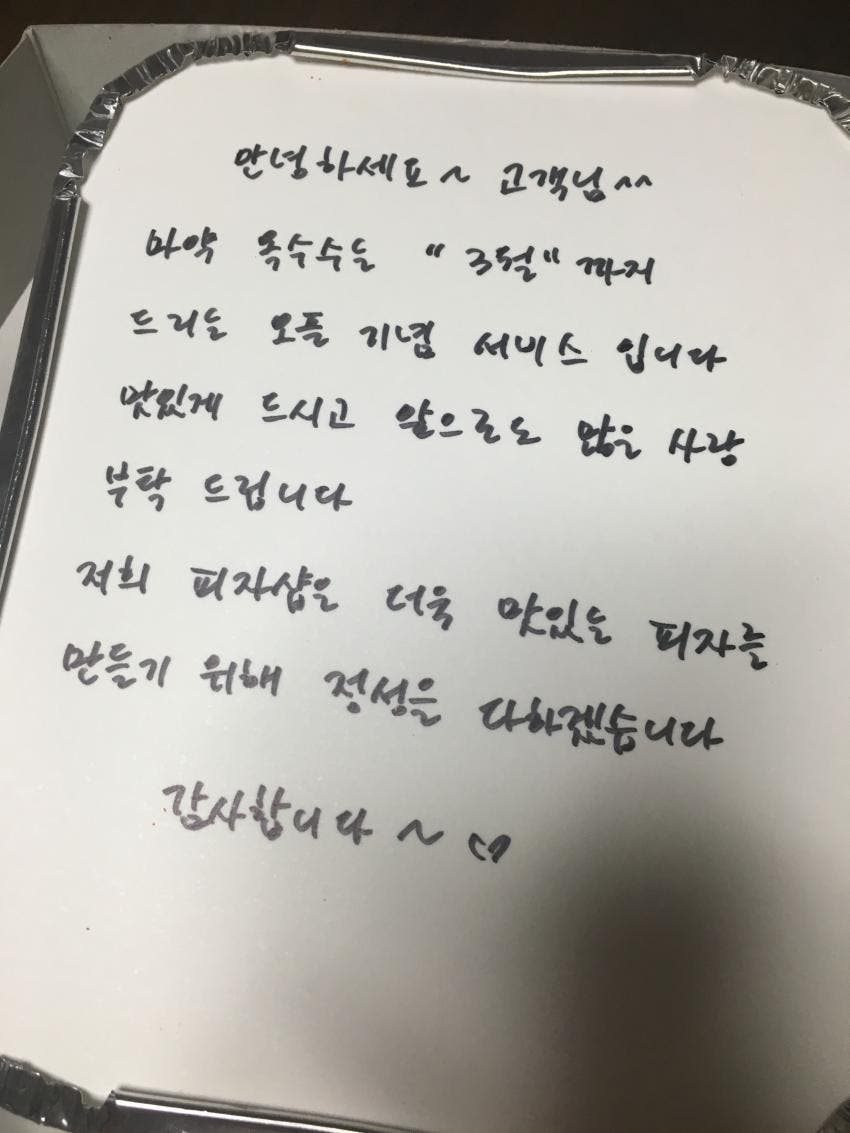 안녕하세요~ 고객님^^
마약 옥수수는 "3월"까지
드리는 오픈 기념 서비스 입니다
맛있게 드시고 앞으로도 많은 사랑
부탁 드립니다
저희 피자샵은 더욱 맛있는 피자를
만들기 위해 정성을 다하겠습니다
감사합니다~ ♡